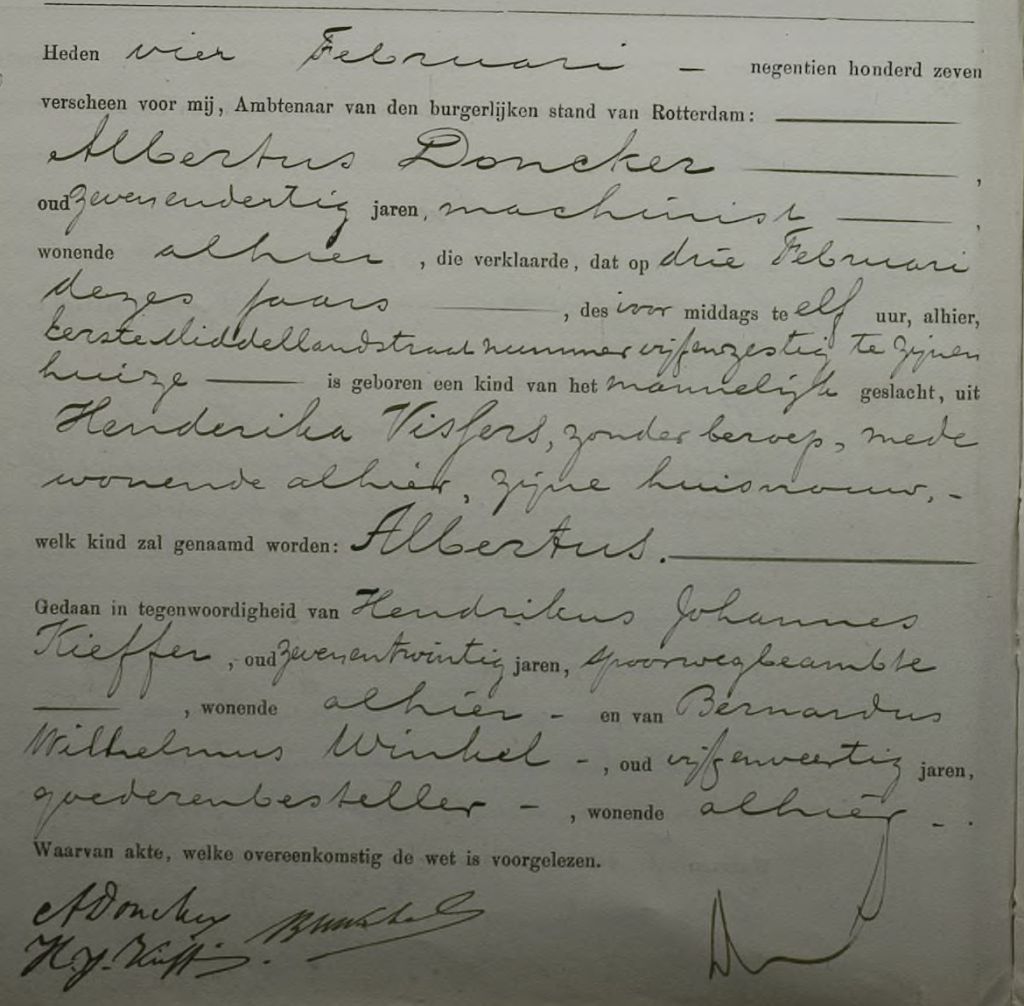 Heden vier Februari – negentien honderd zeven
verscheen voor mij, Ambtenaar van den burgerlijken stand van Rotterdam:
Albertus Doncker ,
oud zevenendertig jaren, machinist ,
wonende alhier , die verklaarde, dat op drie Februari
dezes jaars , des voor middags te elf uur, alhier,
Eerste Middellandstraat nummer vijfenzestig te zijnen
huize is geboren een kind van het mannelijk geslacht, uit
Henderika Vissers, zonder beroep, mede
wonende alhier, zijne huisvrouw, -
welk kind zal genaamd worden: Albertus.
Gedaan in tegenwoordigheid van Hendrikus Johannes
Kieffer , oud zevenentwintig jaren, spoorwegbeambte
, wonende alhier - en van Bernardus
Wilhelmus Winkel - , oud vijfenveertig jaren,
goederenbesteller - , wonende alhier - .
Waarvan akte, welke overeenkomstig de wet is voorgelezen.
ADoncker BWWinkel
H.J. Kieffer.